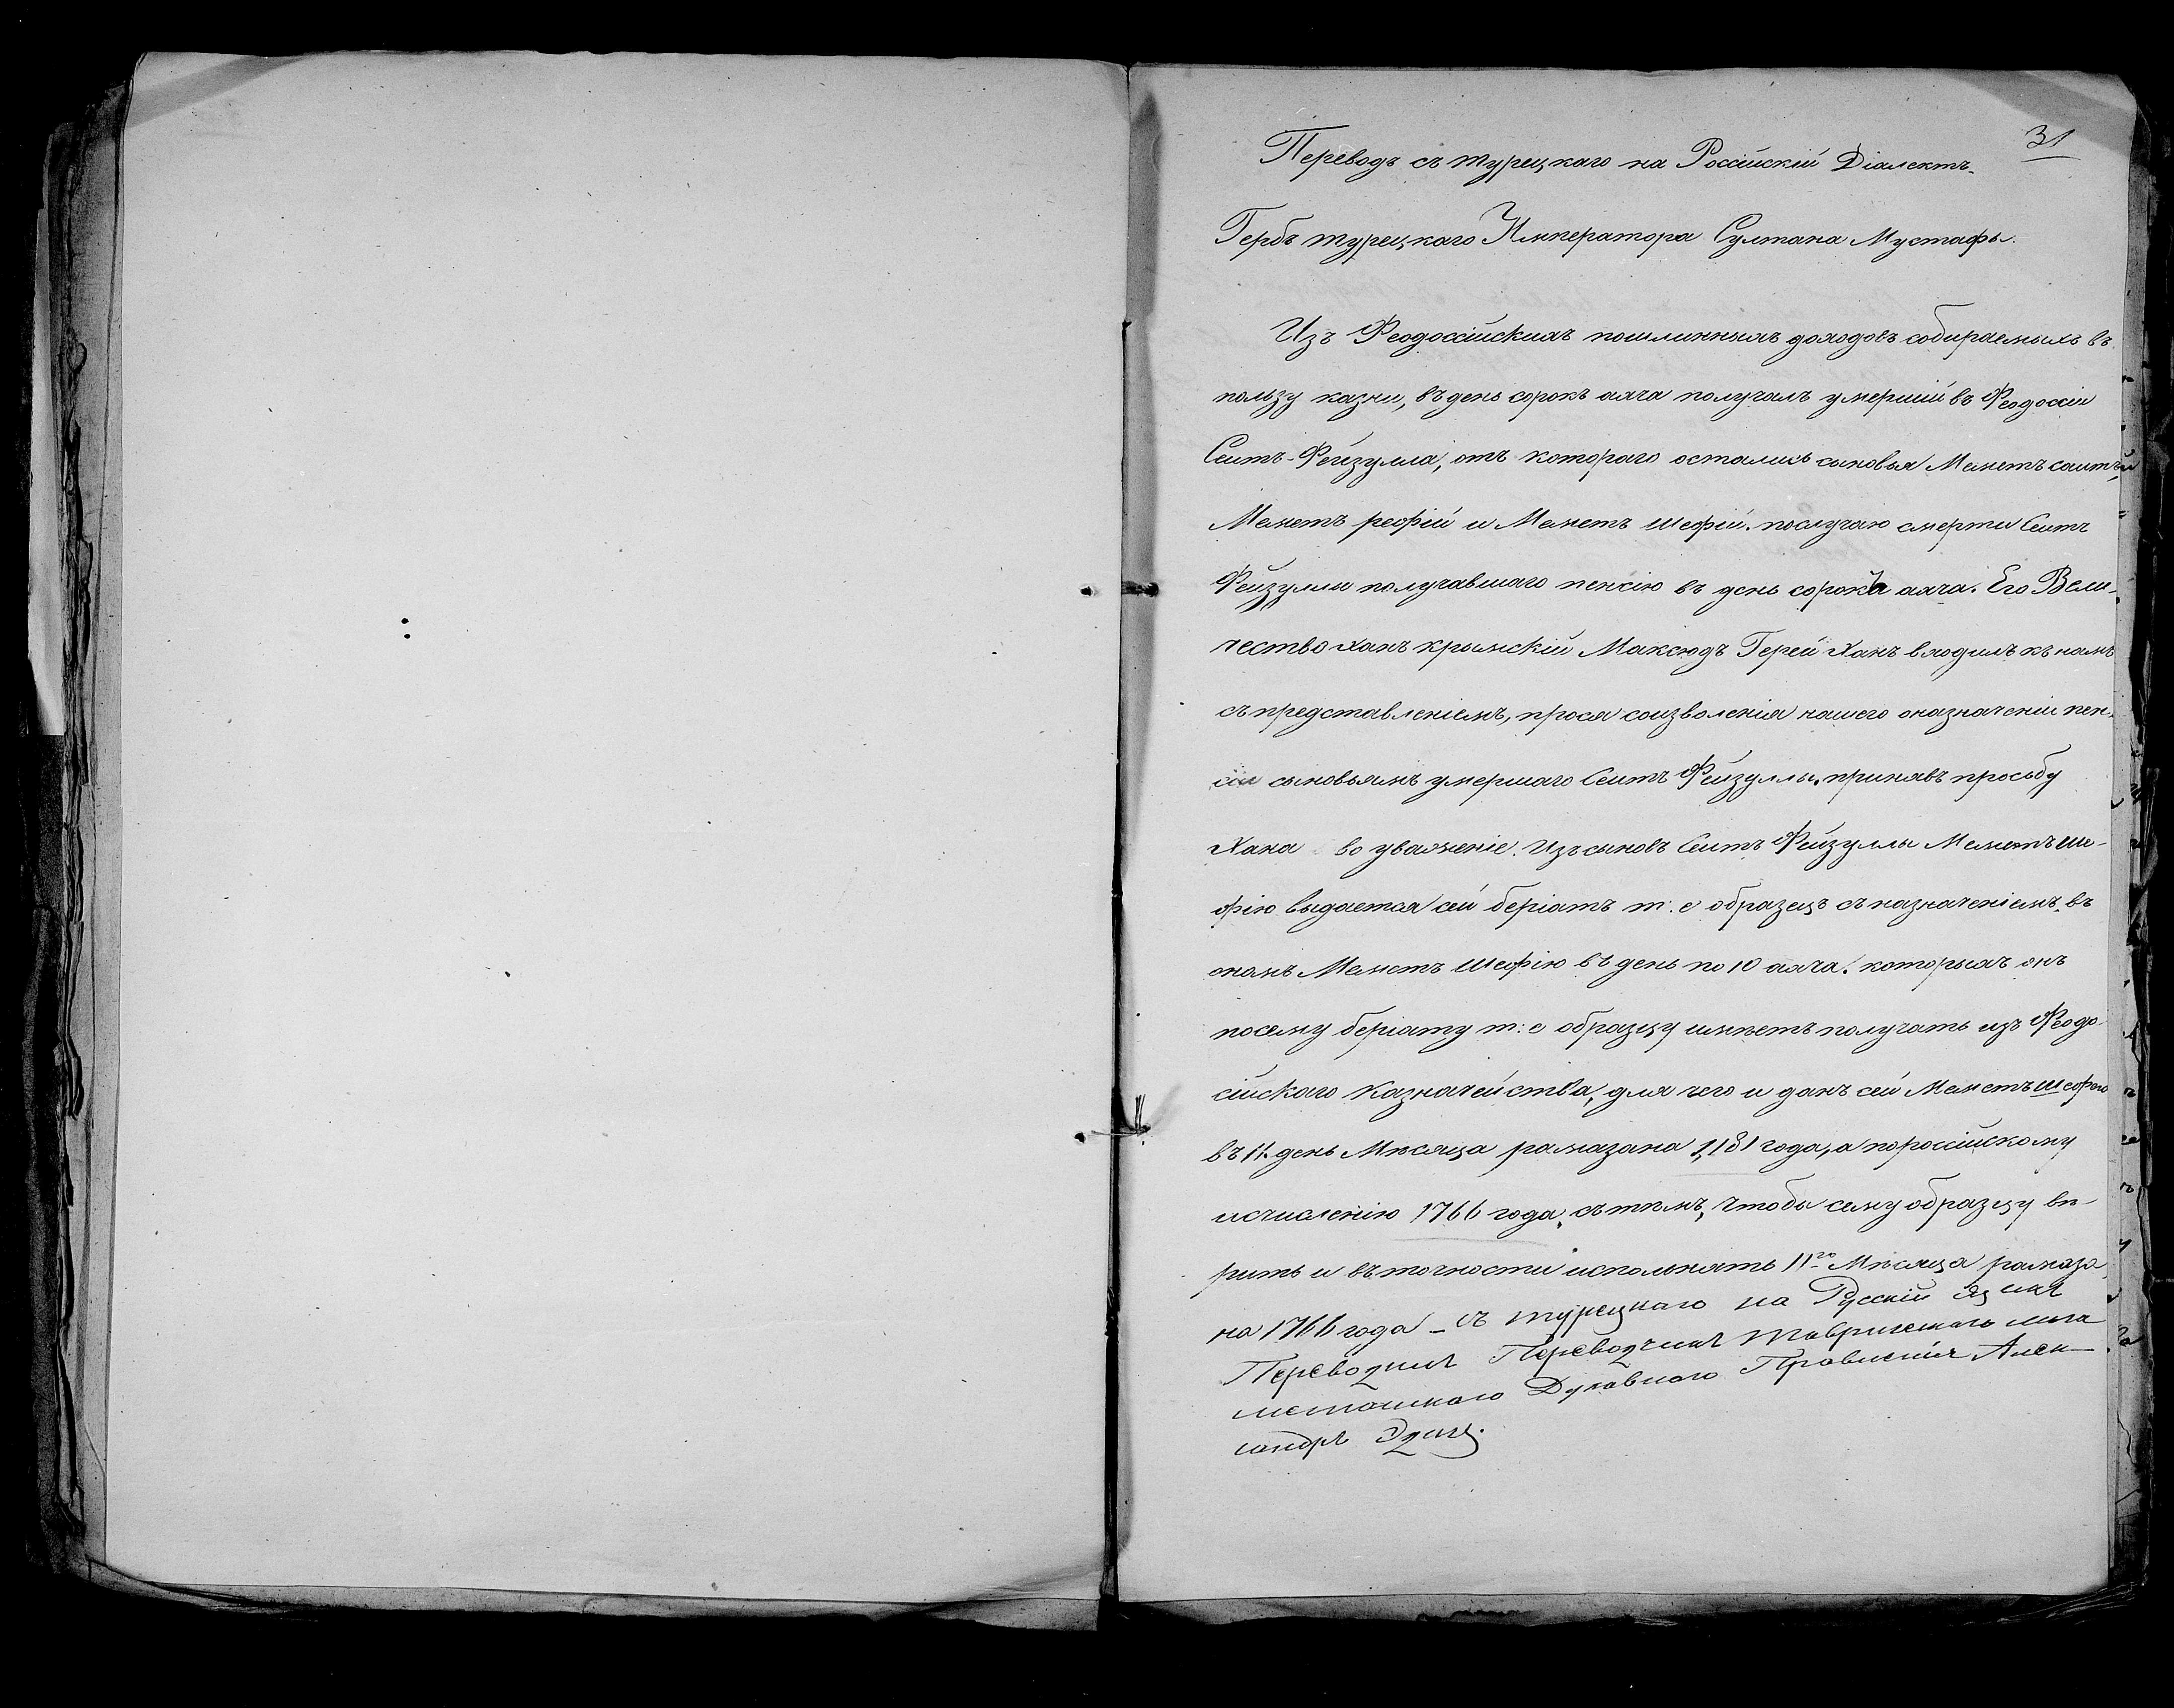 31
Переводъ съ турецкаго на Россійскій Діалектъ.
Гербъ турецкаго Императора Султана Мустафы.
Изъ Феодоссійскихъ пошлинныхъ доходовъ собираемыхъ въ
пользу казны, въ день сорокъ ахча получалъ умершій въ Феодоссіи
Сеитъ-Фейзулла, отъ котораго остались сыновья Меметъ саитъ,
Меметъ рефій и Меметъ шефій. послучаю смерти Сеитъ
Фейзуллы получавшаго пенсію въ день сорокъ ахча. Его Вели-
чество ханъ крымскій Максюдъ Герей Ханъ входилъ къ намъ
съ представленіемъ, прося соизволенія нашего оназначеніи пен-
сіи сыновьямъ умершаго Сеитъ Фейзуллы. принявъ просьбу
Хана во уваженіе. Изъ сыновъ Сеитъ Фейзуллы Меметъ ше-
фію выдается сей беріатъ т. е образецъ съ назначеніемъ въ
ономъ Меметъ Шефію въ день по 10 ахча. которыхъ онъ
посему беріату т: е образцу имѣетъ получать изъ Феодо-
сійскаго Казначейства, для чего и данъ сей Меметъ шефію
въ 11. день Мѣсяца рамазана 1181 года, а пороссійскому
исчисленію 1766 года, съ тѣмъ, чтобы сему образцу вѣ-
рить и въ точности исполнять 11го Мѣсяца рамаза
на 1766 года – Съ турецкаго на Русскій языкъ
Переводилъ Переводчикъ Таврическаго мага
метанскаго Духовнаго Правленія Алек-
сандръ